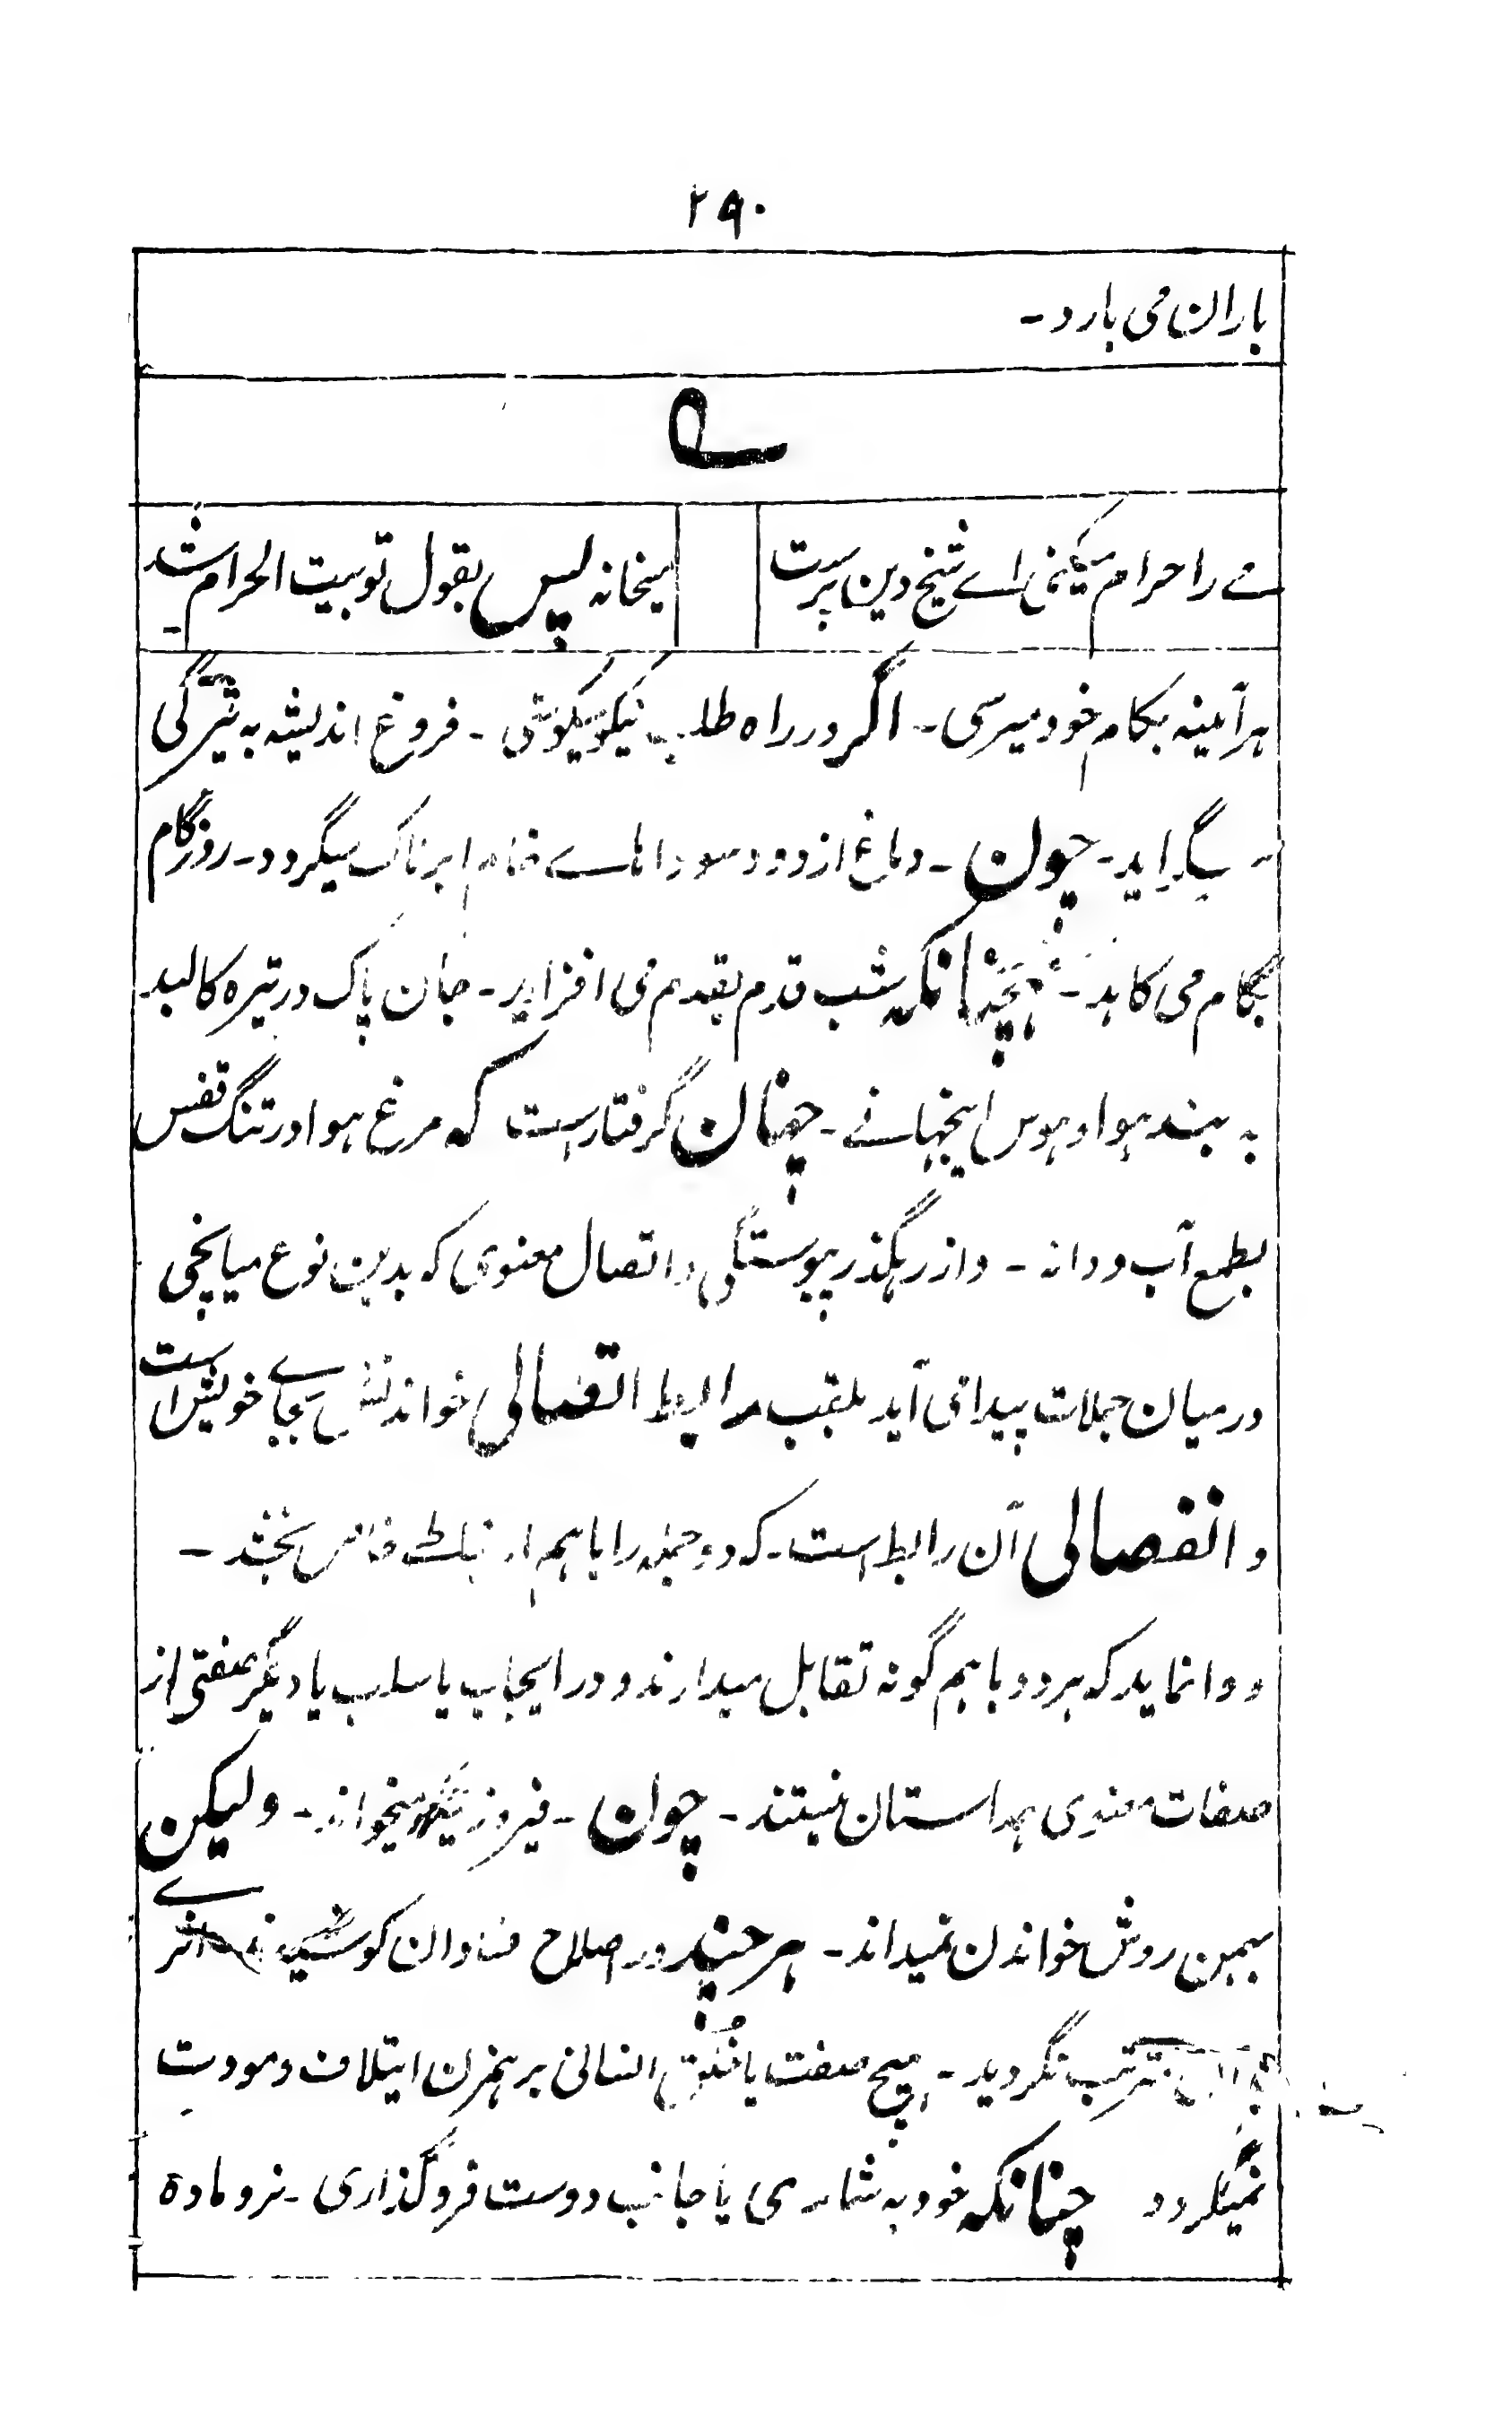 ۲۹۰
باران می بارد۔
مے را حرام میکنی اے شیخ دین پرست
میخانه پس بقول تو بیت الحرام شد۔
هر آئینه بکام خود میرسی۔ اگر در راه طلب نیکو میکوشی۔ فروغ اندیشه به تیرگی
میگراید۔ چون۔ دماغ از دود سوداهاے خام ابرناک میگردد۔ روز گام
بگام می کاهد۔ همچنانکه شب قدم بقدم می افزاید۔ جان پاک در تیره کالبد
به بند هوا و هوس اینجهانے۔ چنان گرفتار است که مرغ هوا در تنگ قفس
بطمع آب و دانه۔ و از رهگذر پیوستگی و اتصال معنوی که بدین نوع میانجی
درمیان جملات پیدا می آید بلقب رابط اتصالی خواندنش بجاے خویش است
و انفصالی آن رابط است۔ که دو جمله را باهم ارتباطے خاص بخشد۔
و وا نماید که هر دو باهم گونه تقابل میدارند و در ایجاب یا سلب یا دیگر صفتی از
صفات معنوی همداستان نیستند۔ چون۔ فیروز نیکو میخواند۔ ولیکن
بهمین روش خواندن نمیداند۔ هر چند در اصلاح فسادان کوشید اثرے
مترتب نگردید۔ هیچ صفت یا خلق انسانی برهمزن ایتلاف و مودت
نمیگردد چنانکه خود به شماری یا جانب دوست فروگذاری۔ نر و ماده